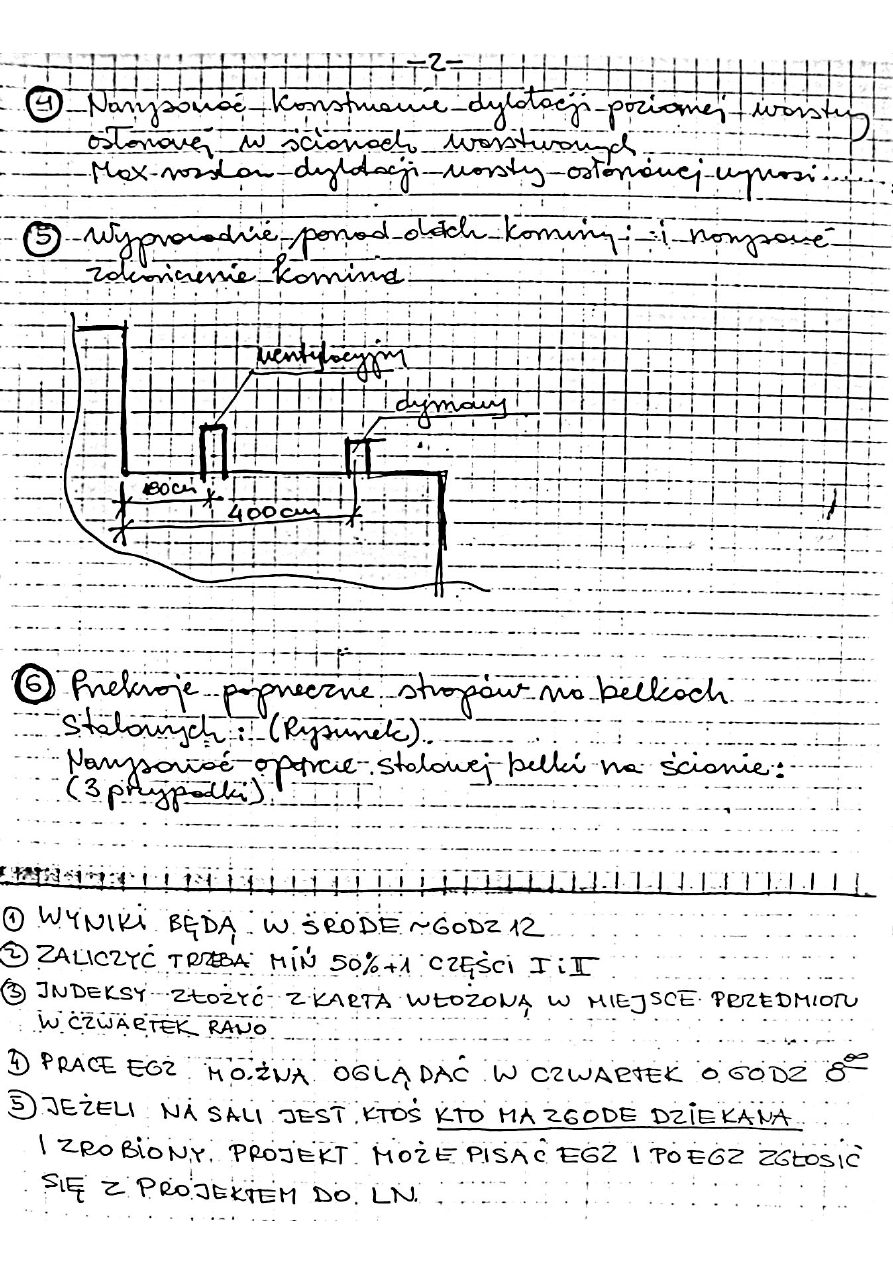 -2-
④ Narysować konstrukcję dylatacji poziomej warstwy
osłonowej w ścianach warstwowych
Max rozstaw dylatacji warstwy osłonowej wynosi......
⑤ Wyprowadzić ponad dach kominy: i narysować
zakończenie komina
wentylacyjny
dymowy
180cm
400cm
⑥ Przekroje poprzeczne stropów na belkach
Stalowych: (Rysunek).
Narysować oparcie stalowej belki na ścianie:
(3 przypadki)
① WYNIKI BĘDĄ W ŚRODE ~GODZ 12
② ZALICZYĆ TRZEBA MIN 50%+1 CZĘŚCI I i II
③ INDEKSY ZŁOŻYĆ Z KARTĄ WŁOŻONĄ W MIEJSCE PRZEDMIOTU
W CZWARTEK RANO
④ PRACE EGZ MOŻNA OGLĄDAĆ W CZWARTEK O GODZ 8⁰⁰
⑤ JEŻELI NA SALI JEST KTOŚ KTO MA ZGODE DZIEKANA
I ZROBIONY PROJEKT MOŻE PISAĆ EGZ I PO EGZ ZGŁOSIĆ
SIĘ Z PROJEKTEM DO LN.